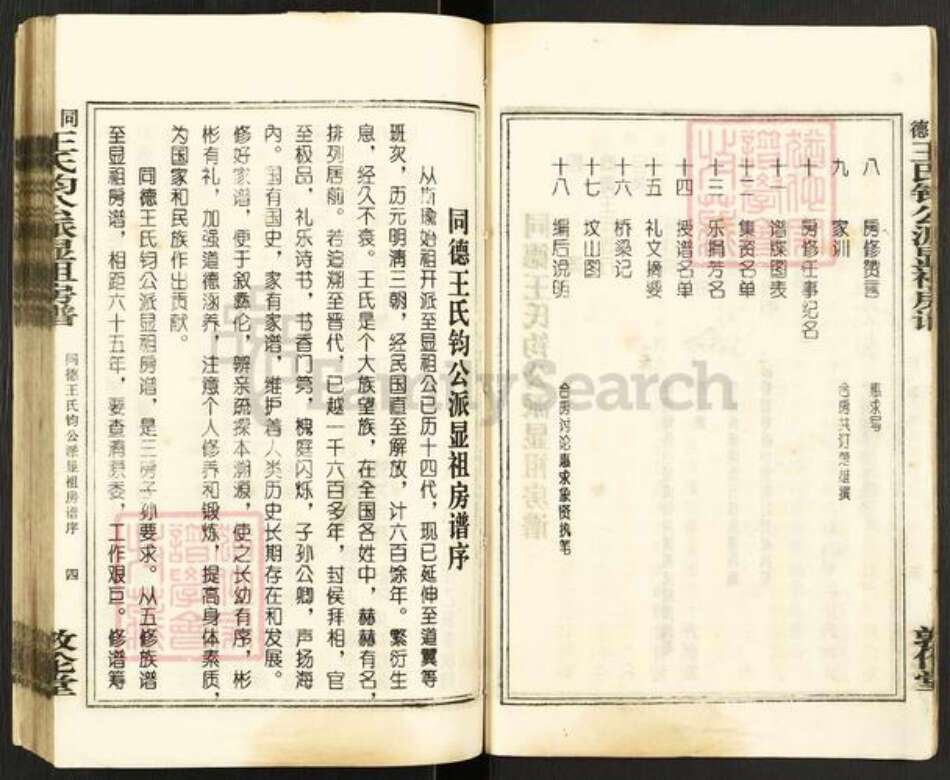 八　房修赞言　惠求写
九　家训　合房共订楚雄撰
十　房修任事纪名
十一　谱牒图表
十二　集资名单
十三　乐捐芳名
十四　授谱名单
十五　礼文摘要
十六　桥梁记
十七　坟山图
十八　编后说明　合房讨论惠求象贤执笔
同德王氏钧公派显祖房谱序
从斯瑜始祖开派至显祖公已历十四代，现已延伸至道翼等
班次，历元明清三朝，经民国直至解放，计六百馀年。繁衍生
息，经久不衰。王氏是个大族望族，在全国各姓中，赫赫有名，
排列居前。若追溯至晋代，已越一千六百多年，封侯拜相，官
至极品，礼乐诗书，书香门第，槐庭闪烁，子孙公卿，声扬海
内。国有国史，家有家谱，维护着人类历史长期存在和发展。
修好家谱，便于叙彝伦，辨亲疏探本溯源，使之长幼有序，彬
彬有礼，加强道德涵养，注意个人修养和锻炼，提高身体素质，
为国家和民族作出贡献。
同德王氏钧公派显祖房谱，是三房子孙要求。从五修族谱
至显祖房谱，相距六十五年，要查清原委，工作艰巨。修谱筹
同王氏钧公派显祖房谱
同德王氏钧公派显祖房谱序
四
敦伦堂
FamilySearch